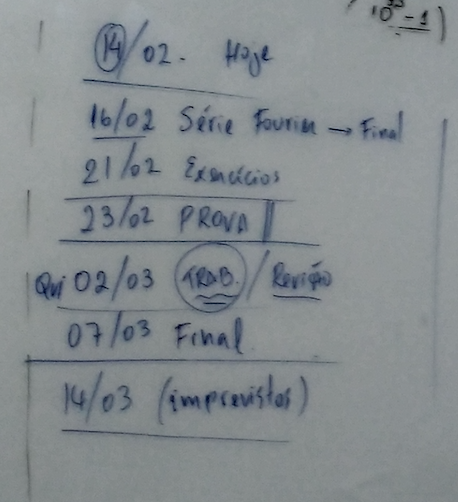 10⁻¹⁵ - 1)
14/02. Hoje
16/02 Série Fourier → Final
21/02 Exercícios
23/02 PROVA
Qui 02/03 TRAB. / Revisão
07/03 Final
14/03 (imprevistos)